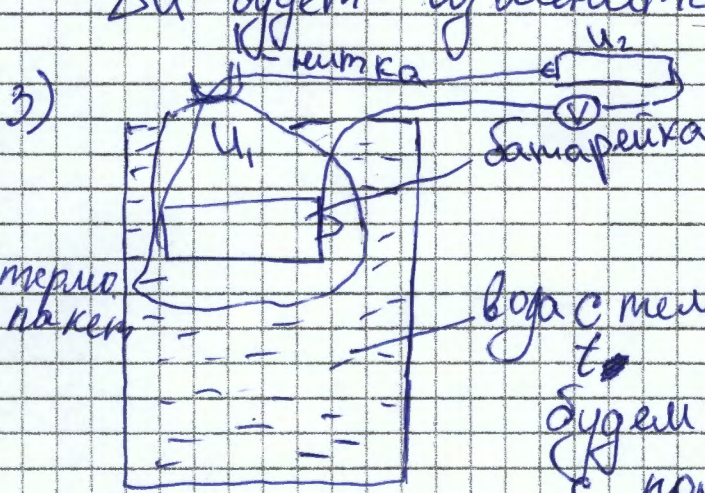 ΔU будет
нитка
U₂
3)
U₁
V
батарейка
термо
пакет
вода с тем
t
будем
с